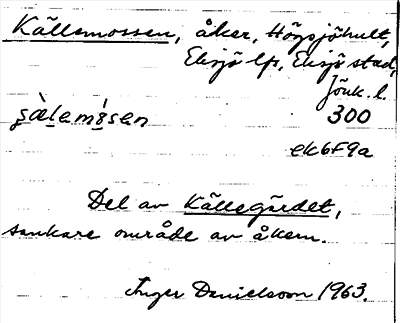 Källemossen, åker, Högsjöhult,
Eksjö lfs, Eksjö stad,
Jönk. l.
300
ek6f9a
Del av Källegärdet,
sankare område av åkern.
Inger Danielsson 1963.